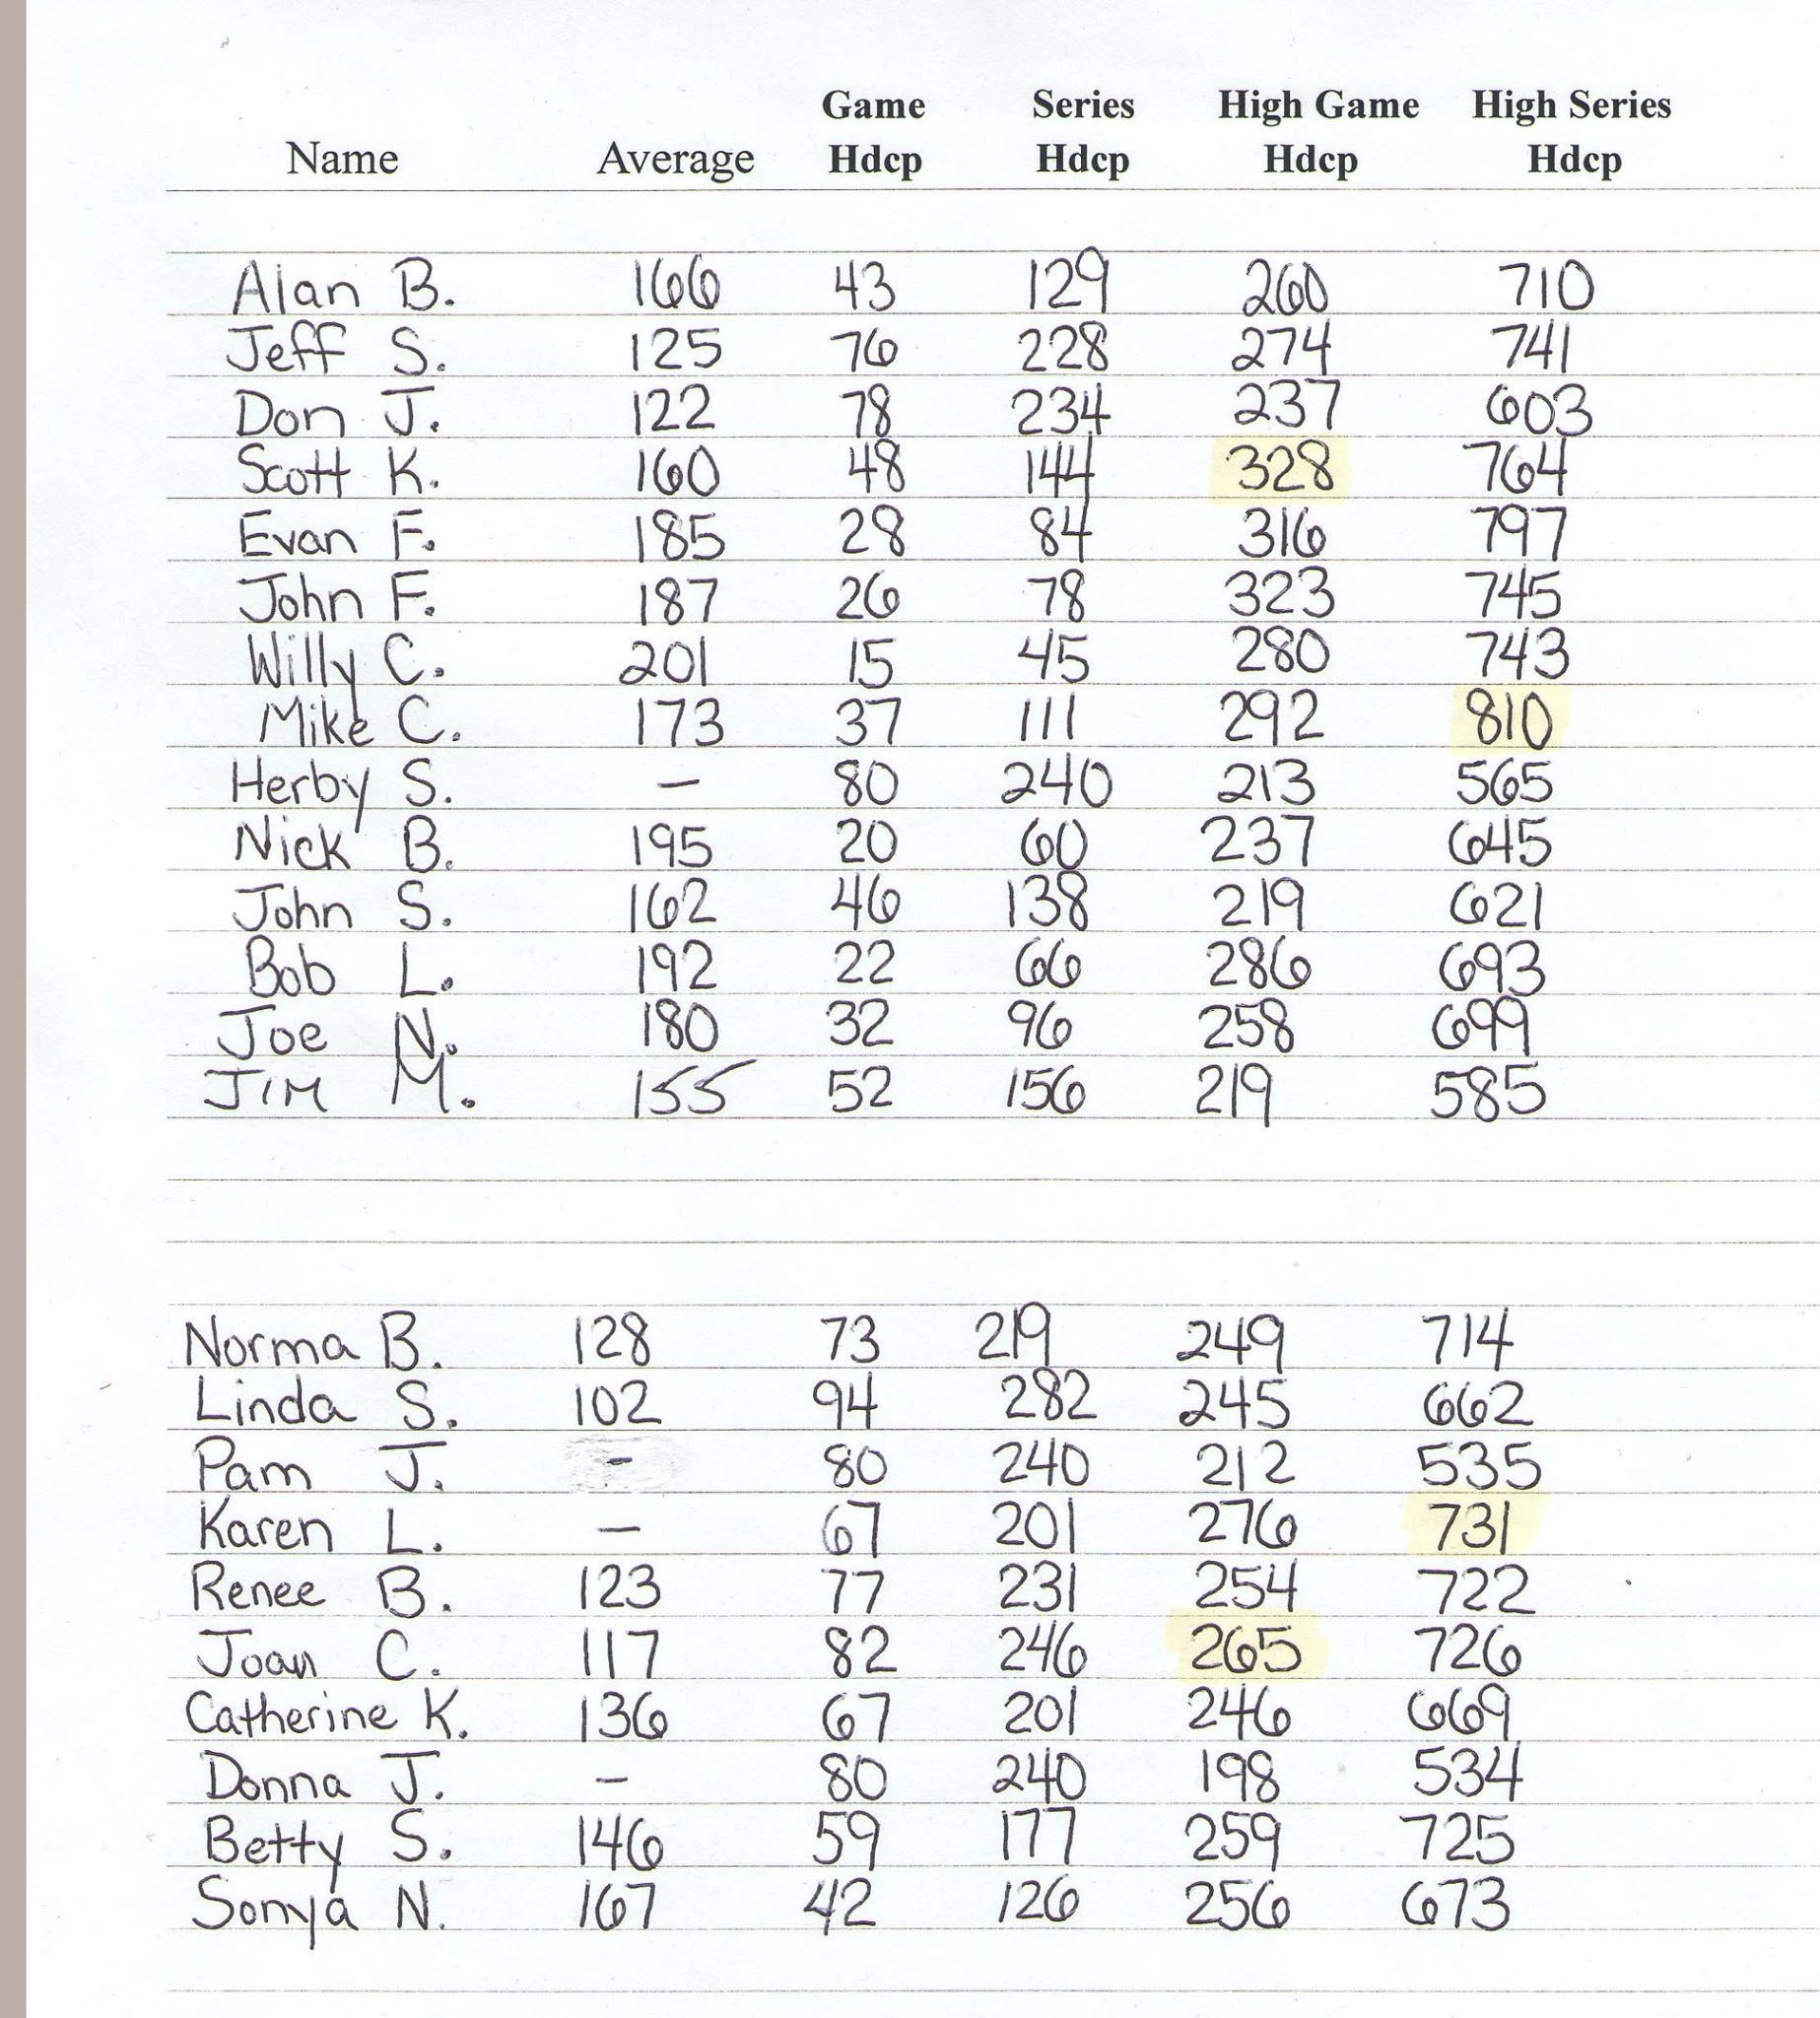 Game Series High Game High Series
Name Average Hdcp Hdcp Hdcp Hdcp
Alan B. 166 43 129 260 710
Jeff S. 125 76 228 274 741
Don J. 122 78 234 237 603
Scott K. 160 48 144 328 764
Evan F. 185 28 84 316 797
John F. 187 26 78 323 745
Willy C. 201 15 45 280 743
Mike C. 173 37 111 292 810
Herby S. – 80 240 213 565
Nick B. 195 20 60 237 645
John S. 162 46 138 219 621
Bob L. 192 22 66 286 693
Joe N. 180 32 96 258 699
JIM M. 155 52 156 219 585
Norma B. 128 73 219 249 714
Linda S. 102 94 282 245 662
Pam J. - 80 240 212 535
Karen L. – 67 201 276 731
Renee B. 123 77 231 254 722
Joan C. 117 82 246 265 726
Catherine K. 136 67 201 246 669
Donna J. – 80 240 198 534
Betty S. 146 59 177 259 725
Sonya N. 167 42 126 256 673